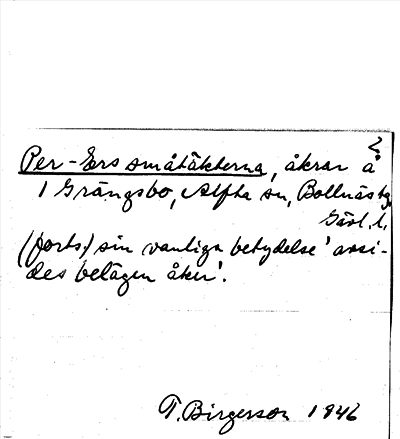 2.
Per-Ers småtäkterna, åkrar å
1 Grängsbo, Alfta sn, Bollnäs tg,
Gävl. l.
(forts.) sin vanliga betydelse 'avsi-
des belägen åker'.
T. Birgersson 1946